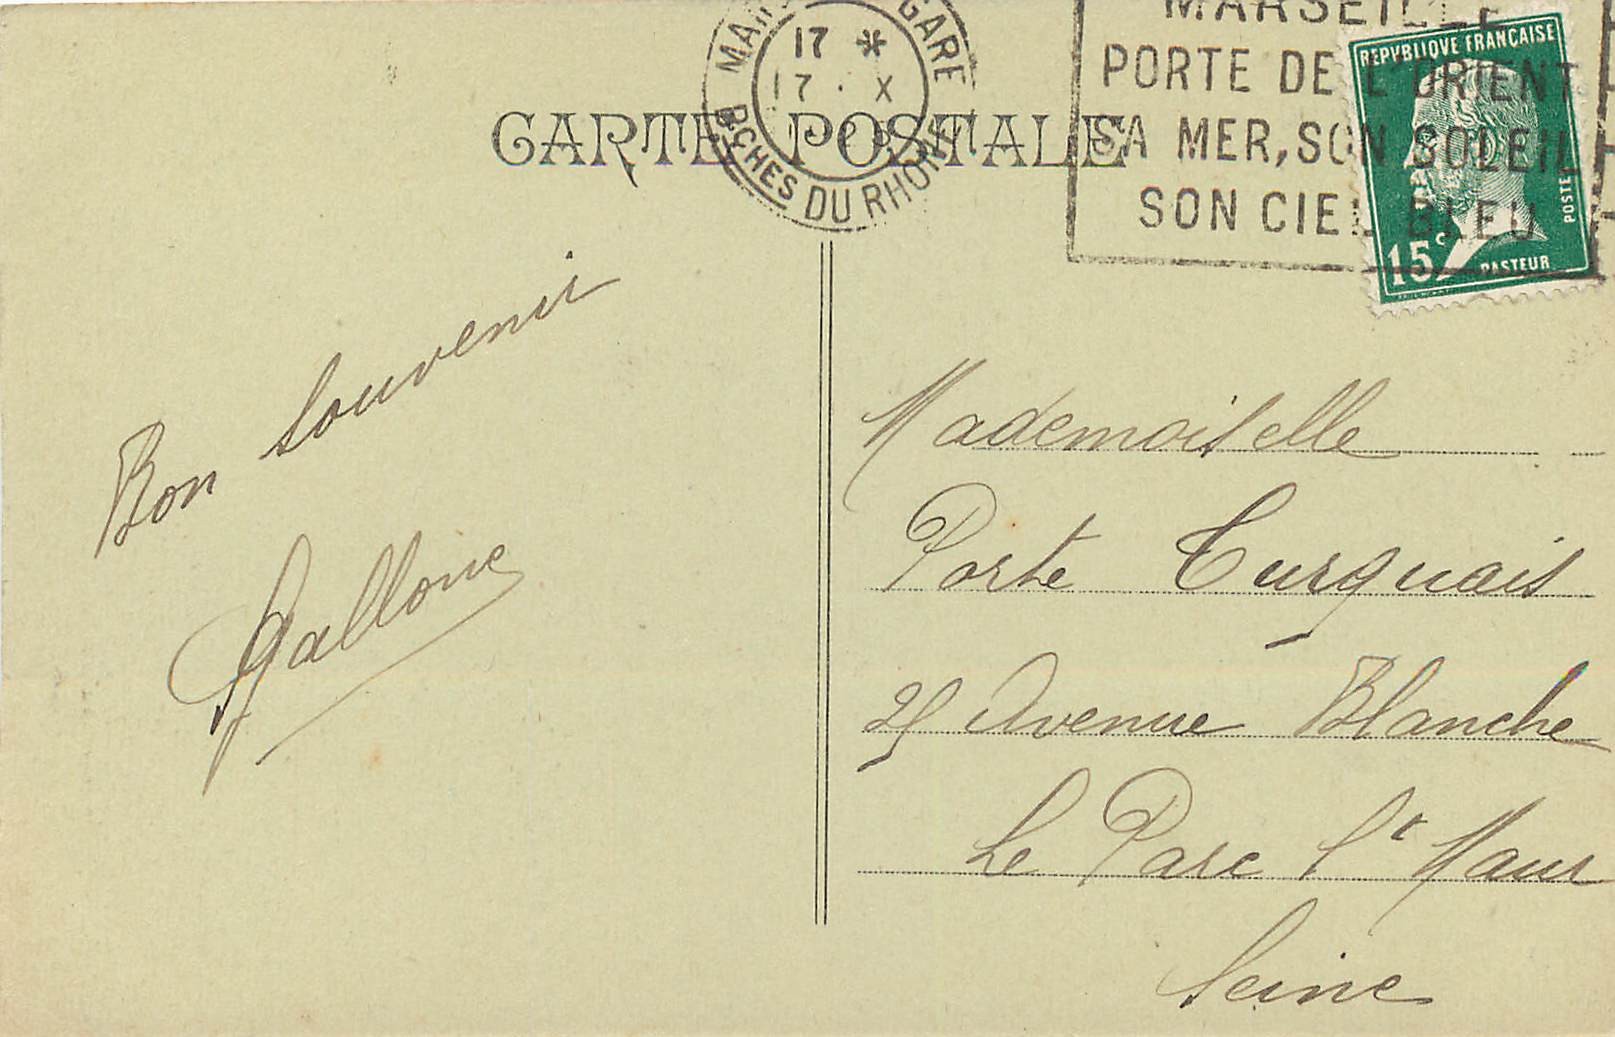 CARTE POSTALE
GARE
17 *
17 · X
BCHES DU RHONE
MARSEILLE
PORTE DE L'ORIENT
SA MER, SON SOLEIL
SON CIEL BLEU
REPVBLIQUE FRANÇAISE
POSTES
15c
PASTEUR
Bon souvenir
Gallone
Mademoiselle
Porte Turquais
25 Avenue Blanche
Le Parc St Maur
Seine